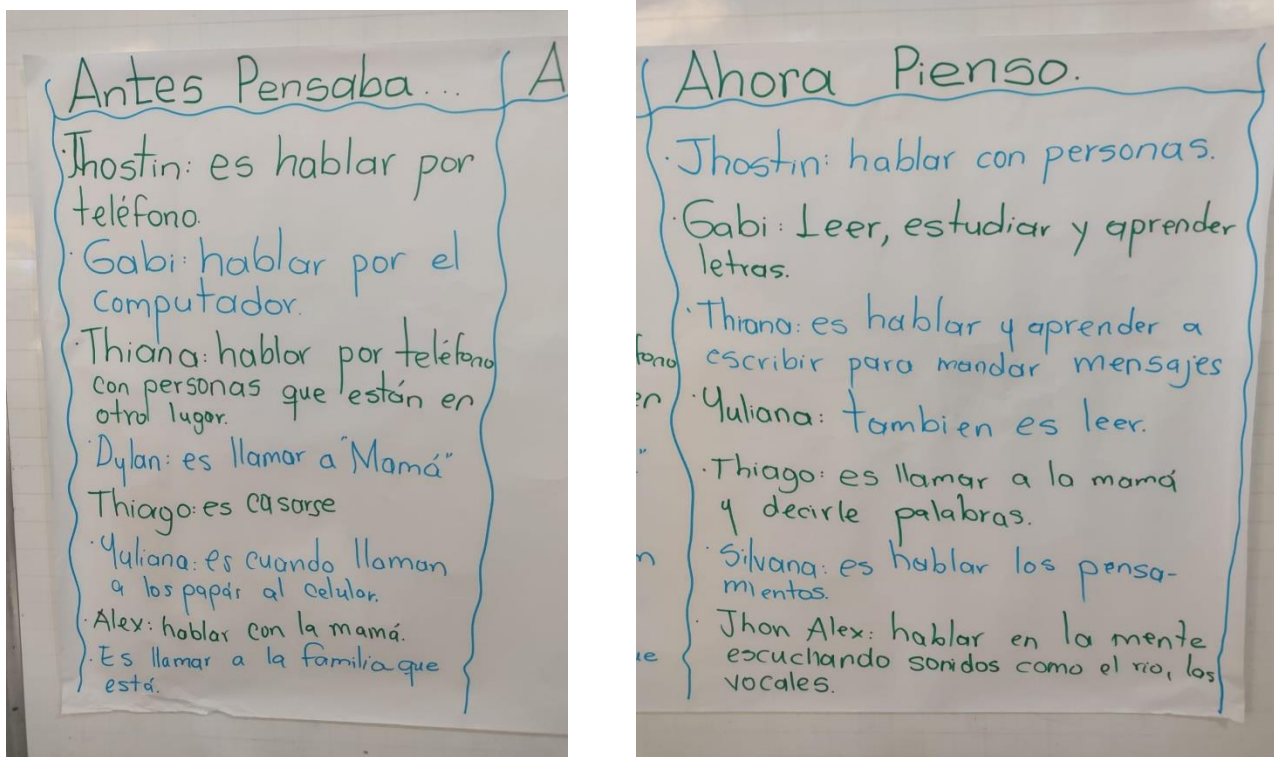 Antes Pensaba... A
Jhostin: es hablar por
teléfono.
· Gabi: hablar por el
computador.
· Thiana: hablar por teléfono
con personas que están en
otro lugar.
· Dylan: es llamar a "Mamá"
Thiago: es casarse
· Yuliana: es cuando llaman
a los papás al celular.
· Alex: hablar con la mamá.
· Es llamar a la familia que
está.
Ahora Pienso.
· Jhostin: hablar con personas.
· Gabi: Leer, estudiar y aprender
letras.
· Thiana: es hablar y aprender a
escribir para mandar mensajes
· Yuliana: tambien es leer.
· Thiago: es llamar a la mamá
y decirle palabras.
· Silvana: es hablar los pensa-
mientos.
· Jhon Alex: hablar en la mente
escuchando sonidos como el rio, las
vocales.